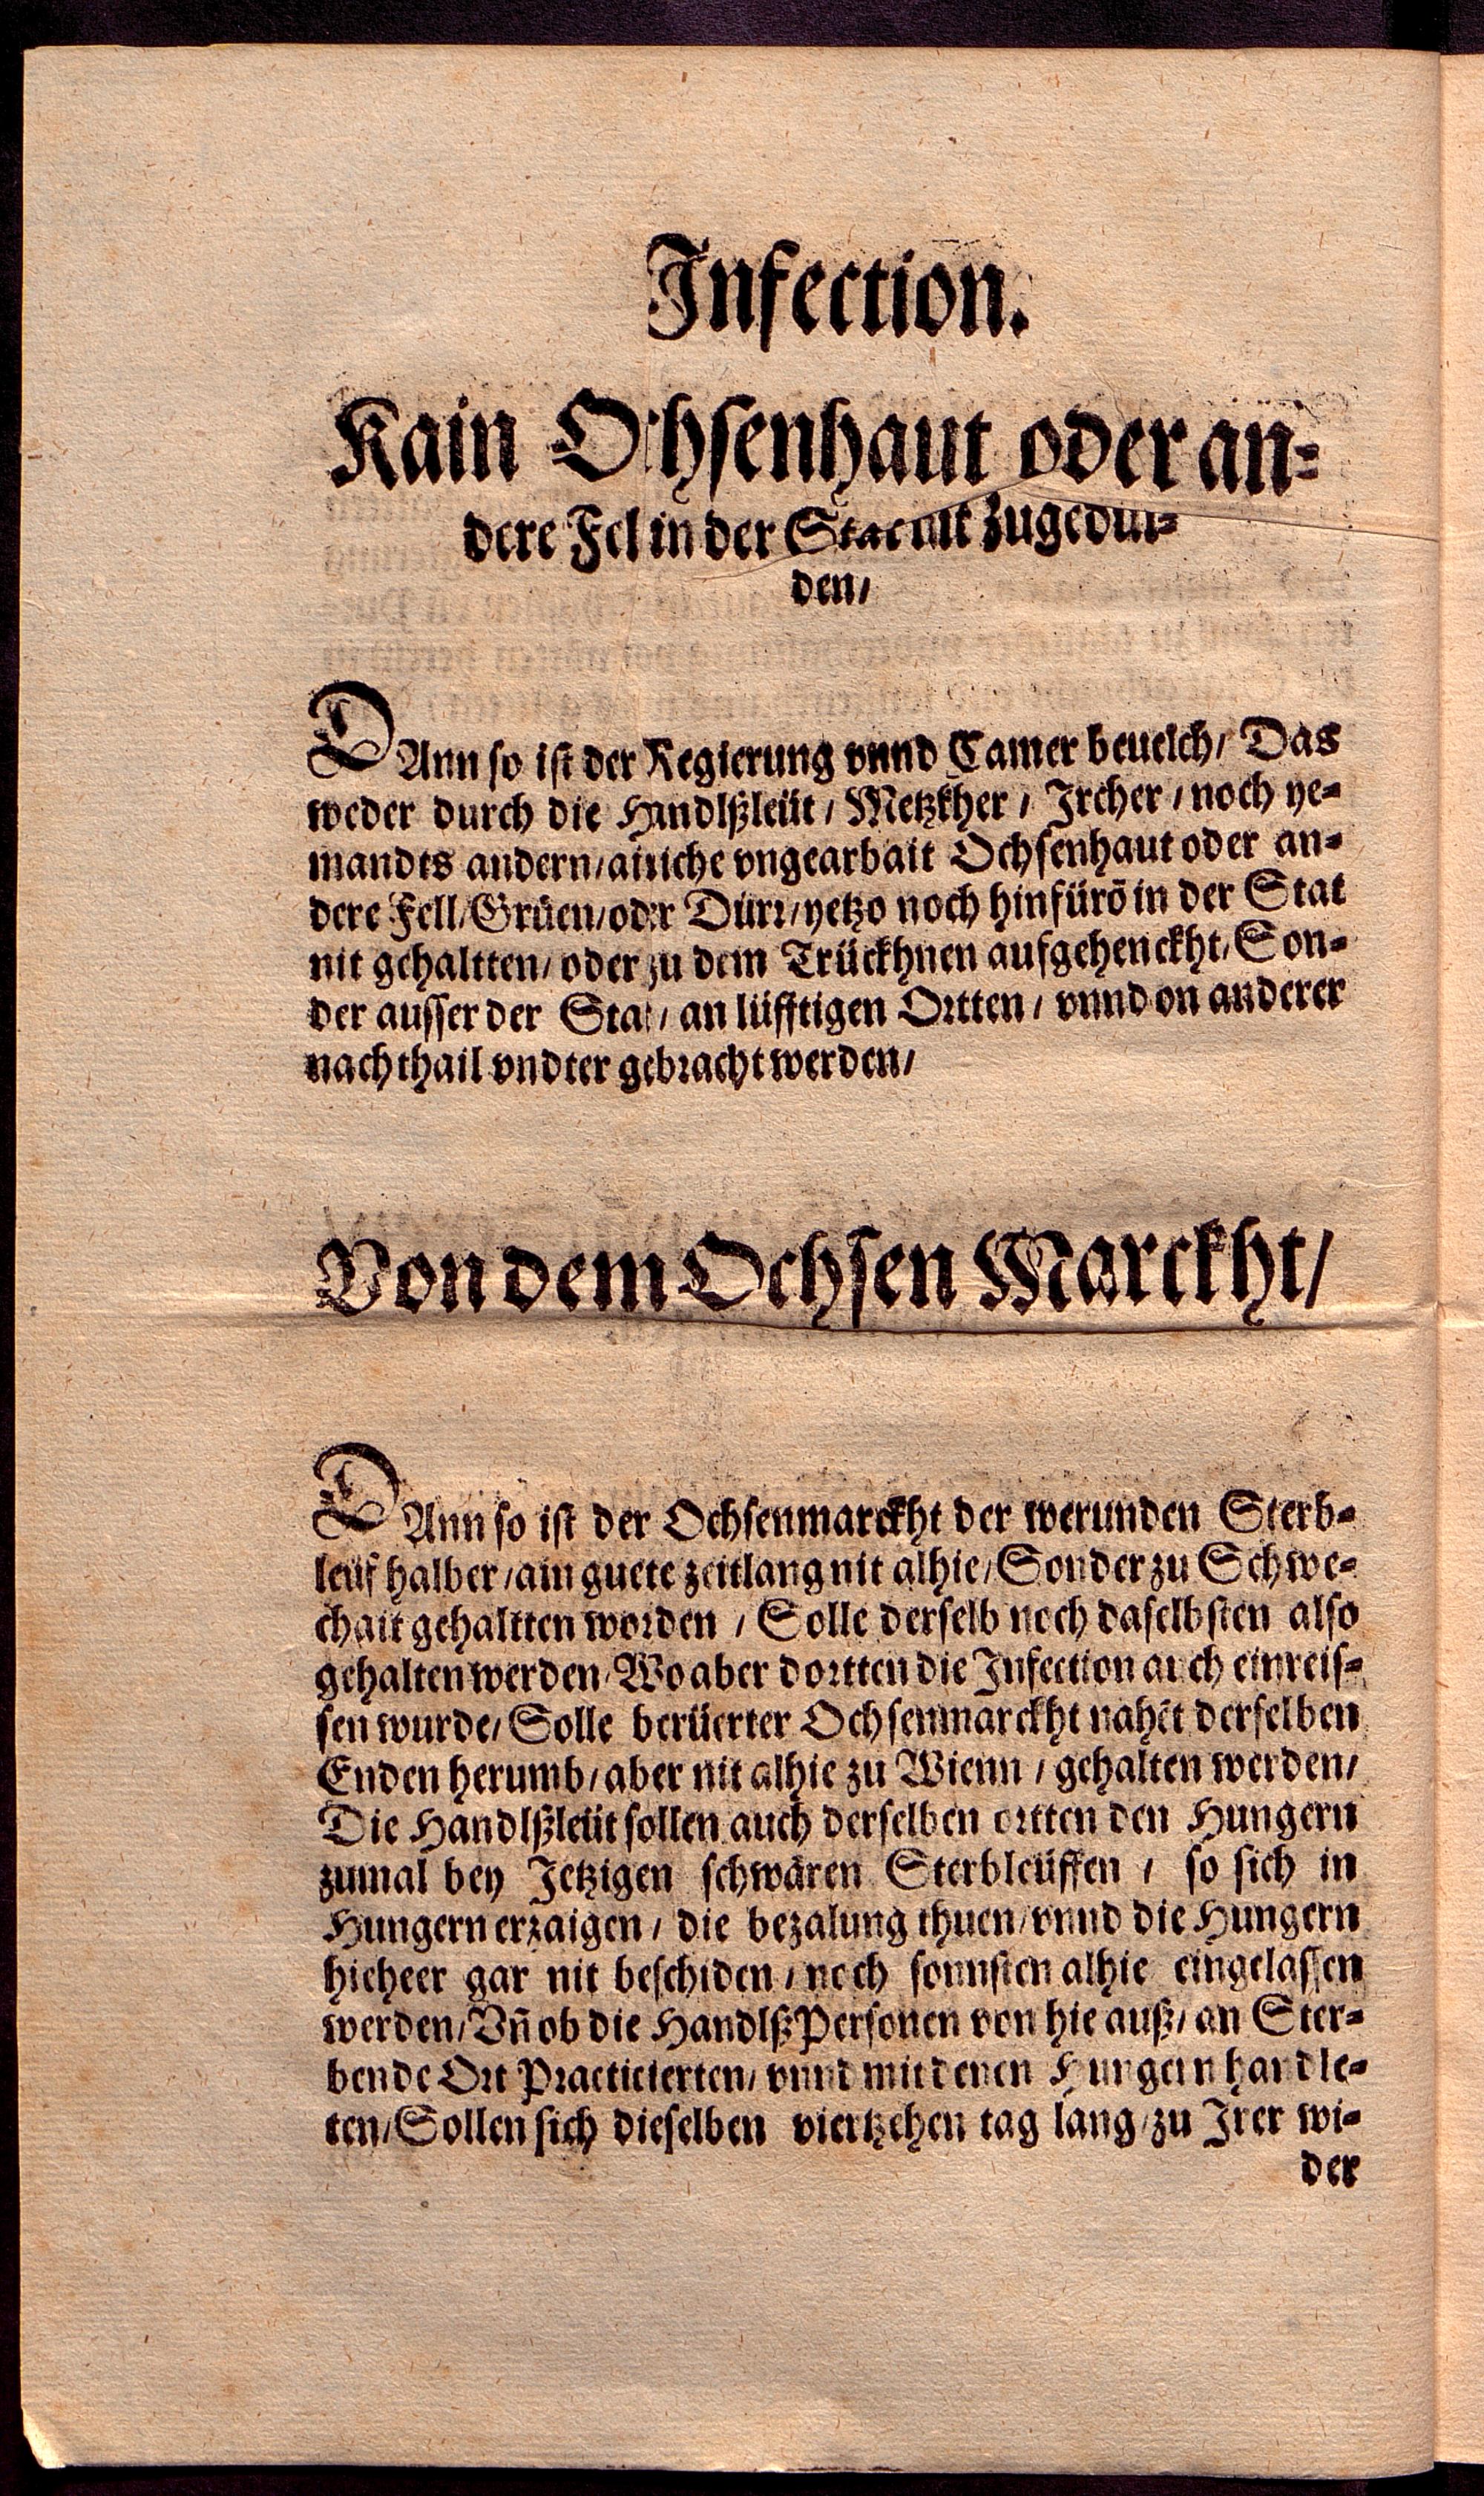 Infection.
Kain Ochsenhaut oder an-
dere Fel in der Stat nit zugedul-
den/
DAnn so ist der Regierung vnnd Camer beuelch/ Das
weder durch die Handlßleüt / Metzkher / Jrcher / noch ye-
mandts andern/ ainiche vngearbait Ochsenhaut oder an-
dere Fell/ Grüen/ oder Dürr/ yetzo noch hinfürō in der Stat
nit gehaltten/ oder zu dem Trückhnen aufgehenckht/ Son-
der ausser der Stat/ an lüfftigen Ortten / vnnd on anderer
nachthail vndter gebracht werden/
Von dem Ochsen Marckht/
DAnn so ist der Ochsenmarckht der werunden Sterb-
leüf halber / ain guete zeitlang nit alhie/ Sonder zu Schwe-
chait gehaltten worden / Solle derselb noch daselbsten also
gehalten werden/ Wo aber dortten die Infection auch einreis-
sen wurde/ Solle berüerter Ochsenmarckht nahēt derselben
Enden herumb/ aber nit alhie zu Wienn / gehalten werden/
Die Handlßleüt sollen auch derselben ortten den Hungern
zumal bey Jetzigen schwären Sterbleüffen / so sich in
Hungern erzaigen / die bezalung thuen/ vnnd die Hungern
hieheer gar nit beschiden / noch sonnsten alhie eingelassen
werden/ Vn̄ ob die Handlß Personen von hie auß/ an Ster-
bende Ort Practicierten/ vnnd mit denen Hungern handle-
ten/ Sollen sich dieselben viertzehen tag lang/ zu Jrer wi-
der